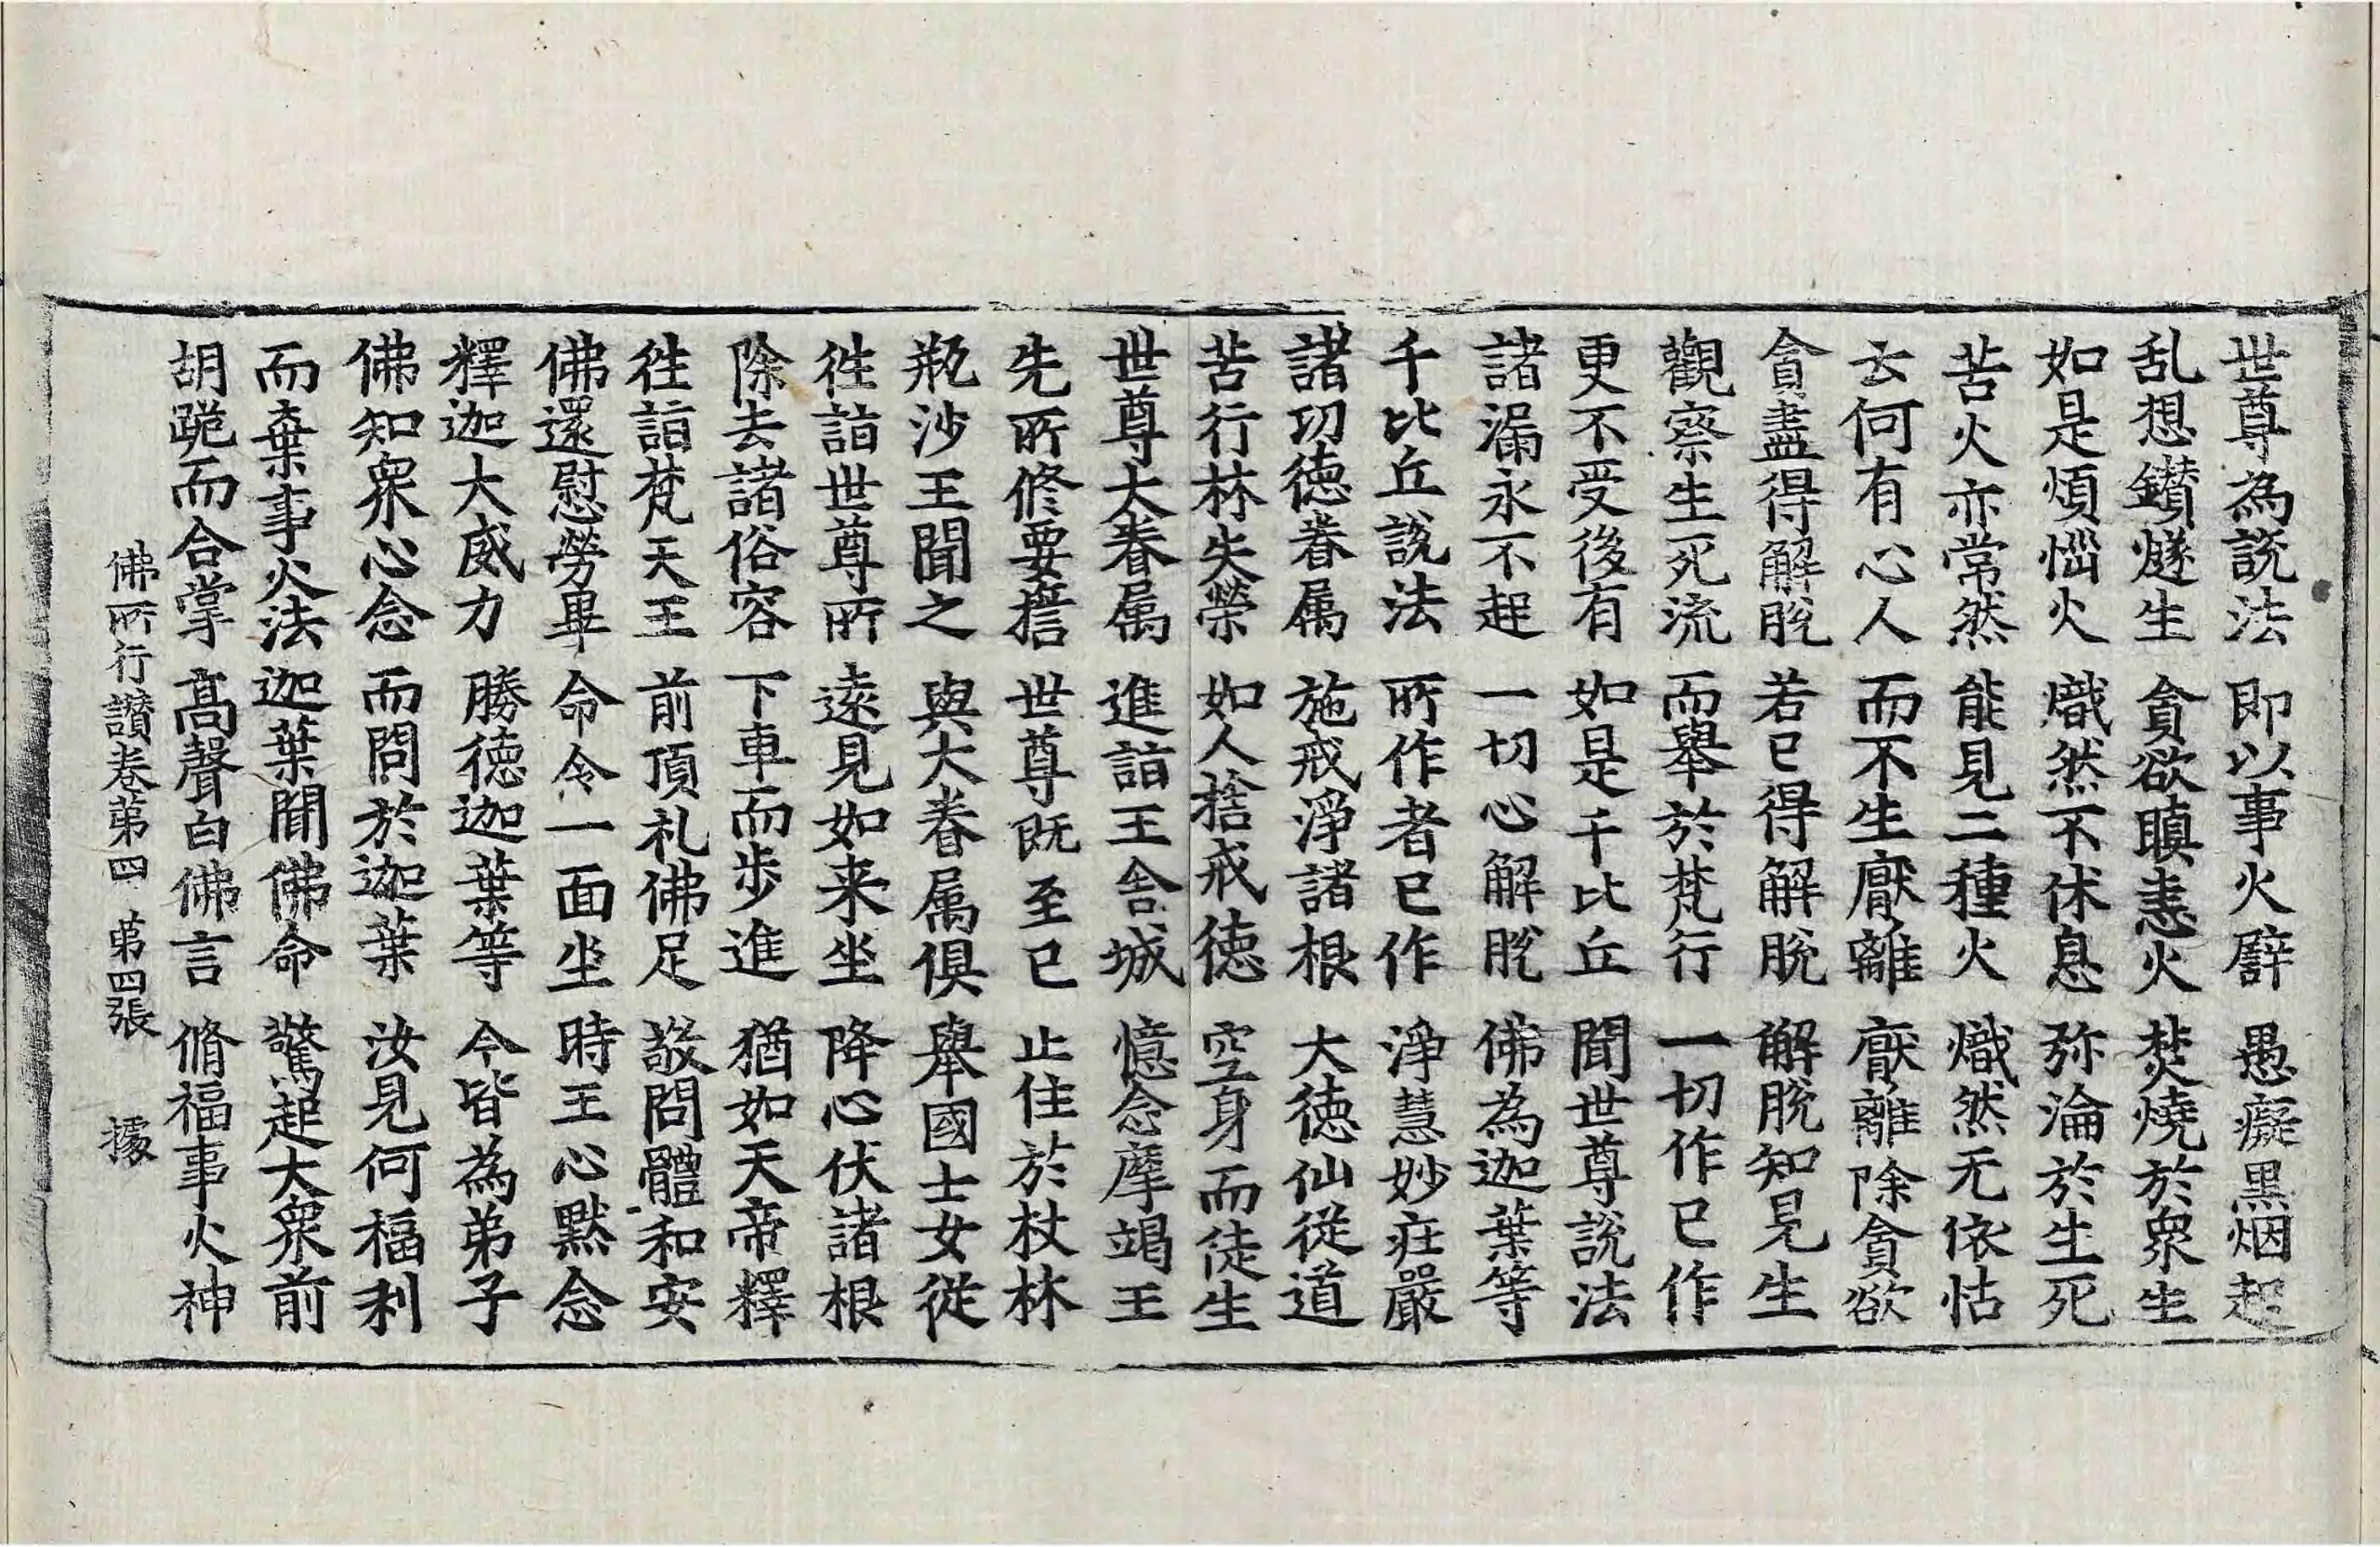 世尊為說法 即以事火譬 愚癡黑烟起
乱想鑚燧生 貪欲瞋恚火 焚燒於衆生
如是煩惱火 熾然不休息 弥淪於生死
苦火亦常然 能見二種火 熾然无依怙
云何有心人 而不生厭離 厭離除貪欲
貪盡得解脫 若已得解脫 解脫知見生
觀察生死流 而舉於梵行 一切作已作
更不受後有 如是千比丘 聞世尊說法
諸漏永不起 一切心解脫 佛為迦葉等
千比丘說法 所作者已作 淨慧妙莊嚴
諸功德眷属 施戒淨諸根 大德仙從道
苦行林失榮 如人捨戒德 空身而徒生
世尊大眷属 進詣王舍城 憶念摩竭王
先所修要誓 世尊既至已 止住於杖林
瓶沙王聞之 與大眷属俱 舉國士女從
往詣世尊所 遠見如来坐 降心伏諸根
除去諸俗容 下車而步進 猶如天帝釋
往詣梵天王 前頂礼佛足 敬問體和安
佛還慰勞畢 命令一面坐 時王心默念
釋迦大威力 勝德迦葉等 今皆為弟子
佛知衆心念 而問於迦葉 汝見何福利
而棄事火法 迦葉聞佛命 驚起大衆前
胡跪而合掌 高聲白佛言 脩福事火神
佛所行讚卷第四 第四張 據